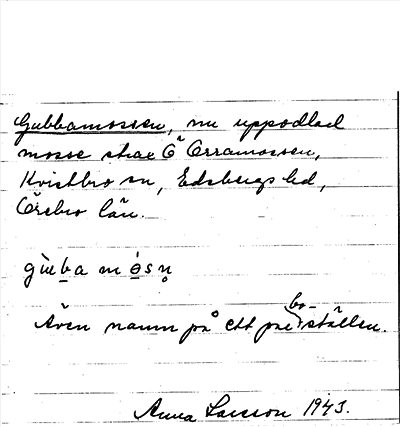 Gubbamossen, nu uppodlad
mosse strax Ö Orramossen,
Kvistbro sn, Edsbergs hd,
Örebro län.
gùb̲a mó̲sn̥
Även namn på ett par bo-ställen.
Anna Larsson 1943.